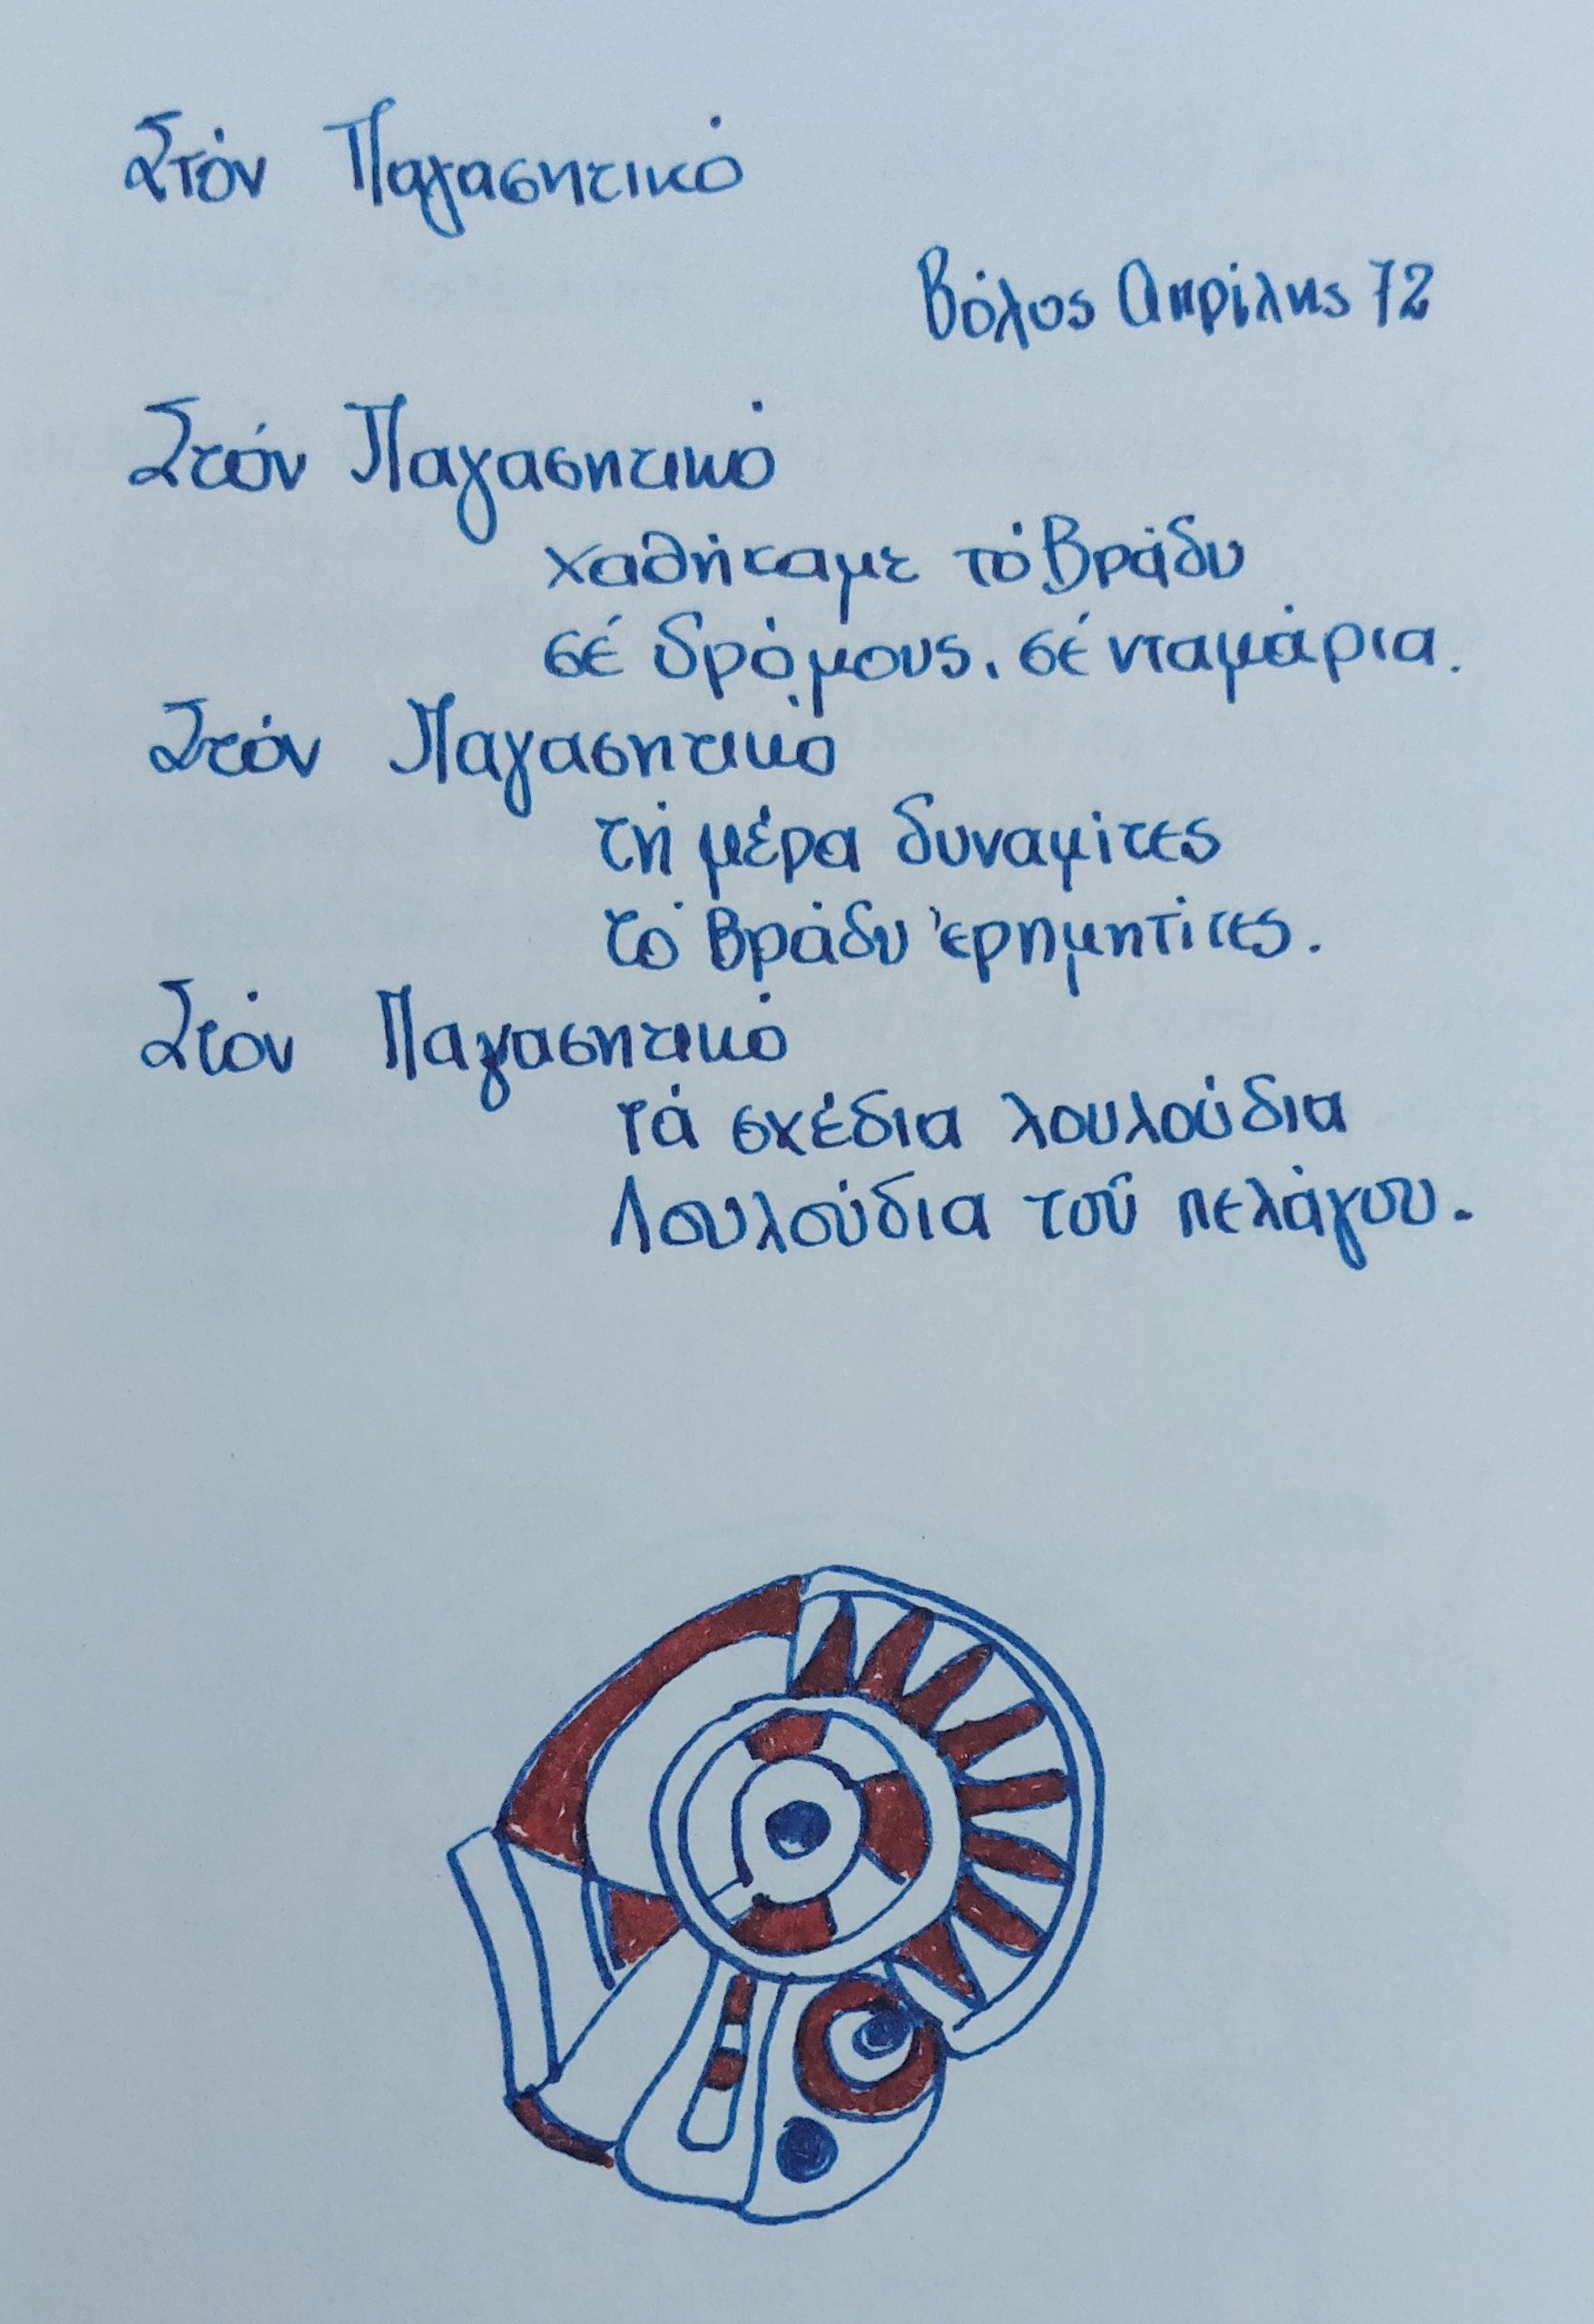 Στόν Παγασητικό
Βόλος Απρίλης 72
Στόν Παγασητικό
χαθήκαμε τό Βράδυ
σέ δρόμους. σέ νταμάρια.
Στόν Παγασητικό
τή μέρα δυναμίτες
τό Βράδυ ἐρημητίτες.
Στόν Παγασητικό
τά σχέδια λουλούδια
Λουλούδια τοῦ πελάγου.